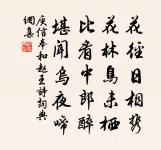 花徑日相攜
花林鳥未棲
比看中郎醉
堪聞烏夜啼
庾信奉和趙王詩詞典
網集